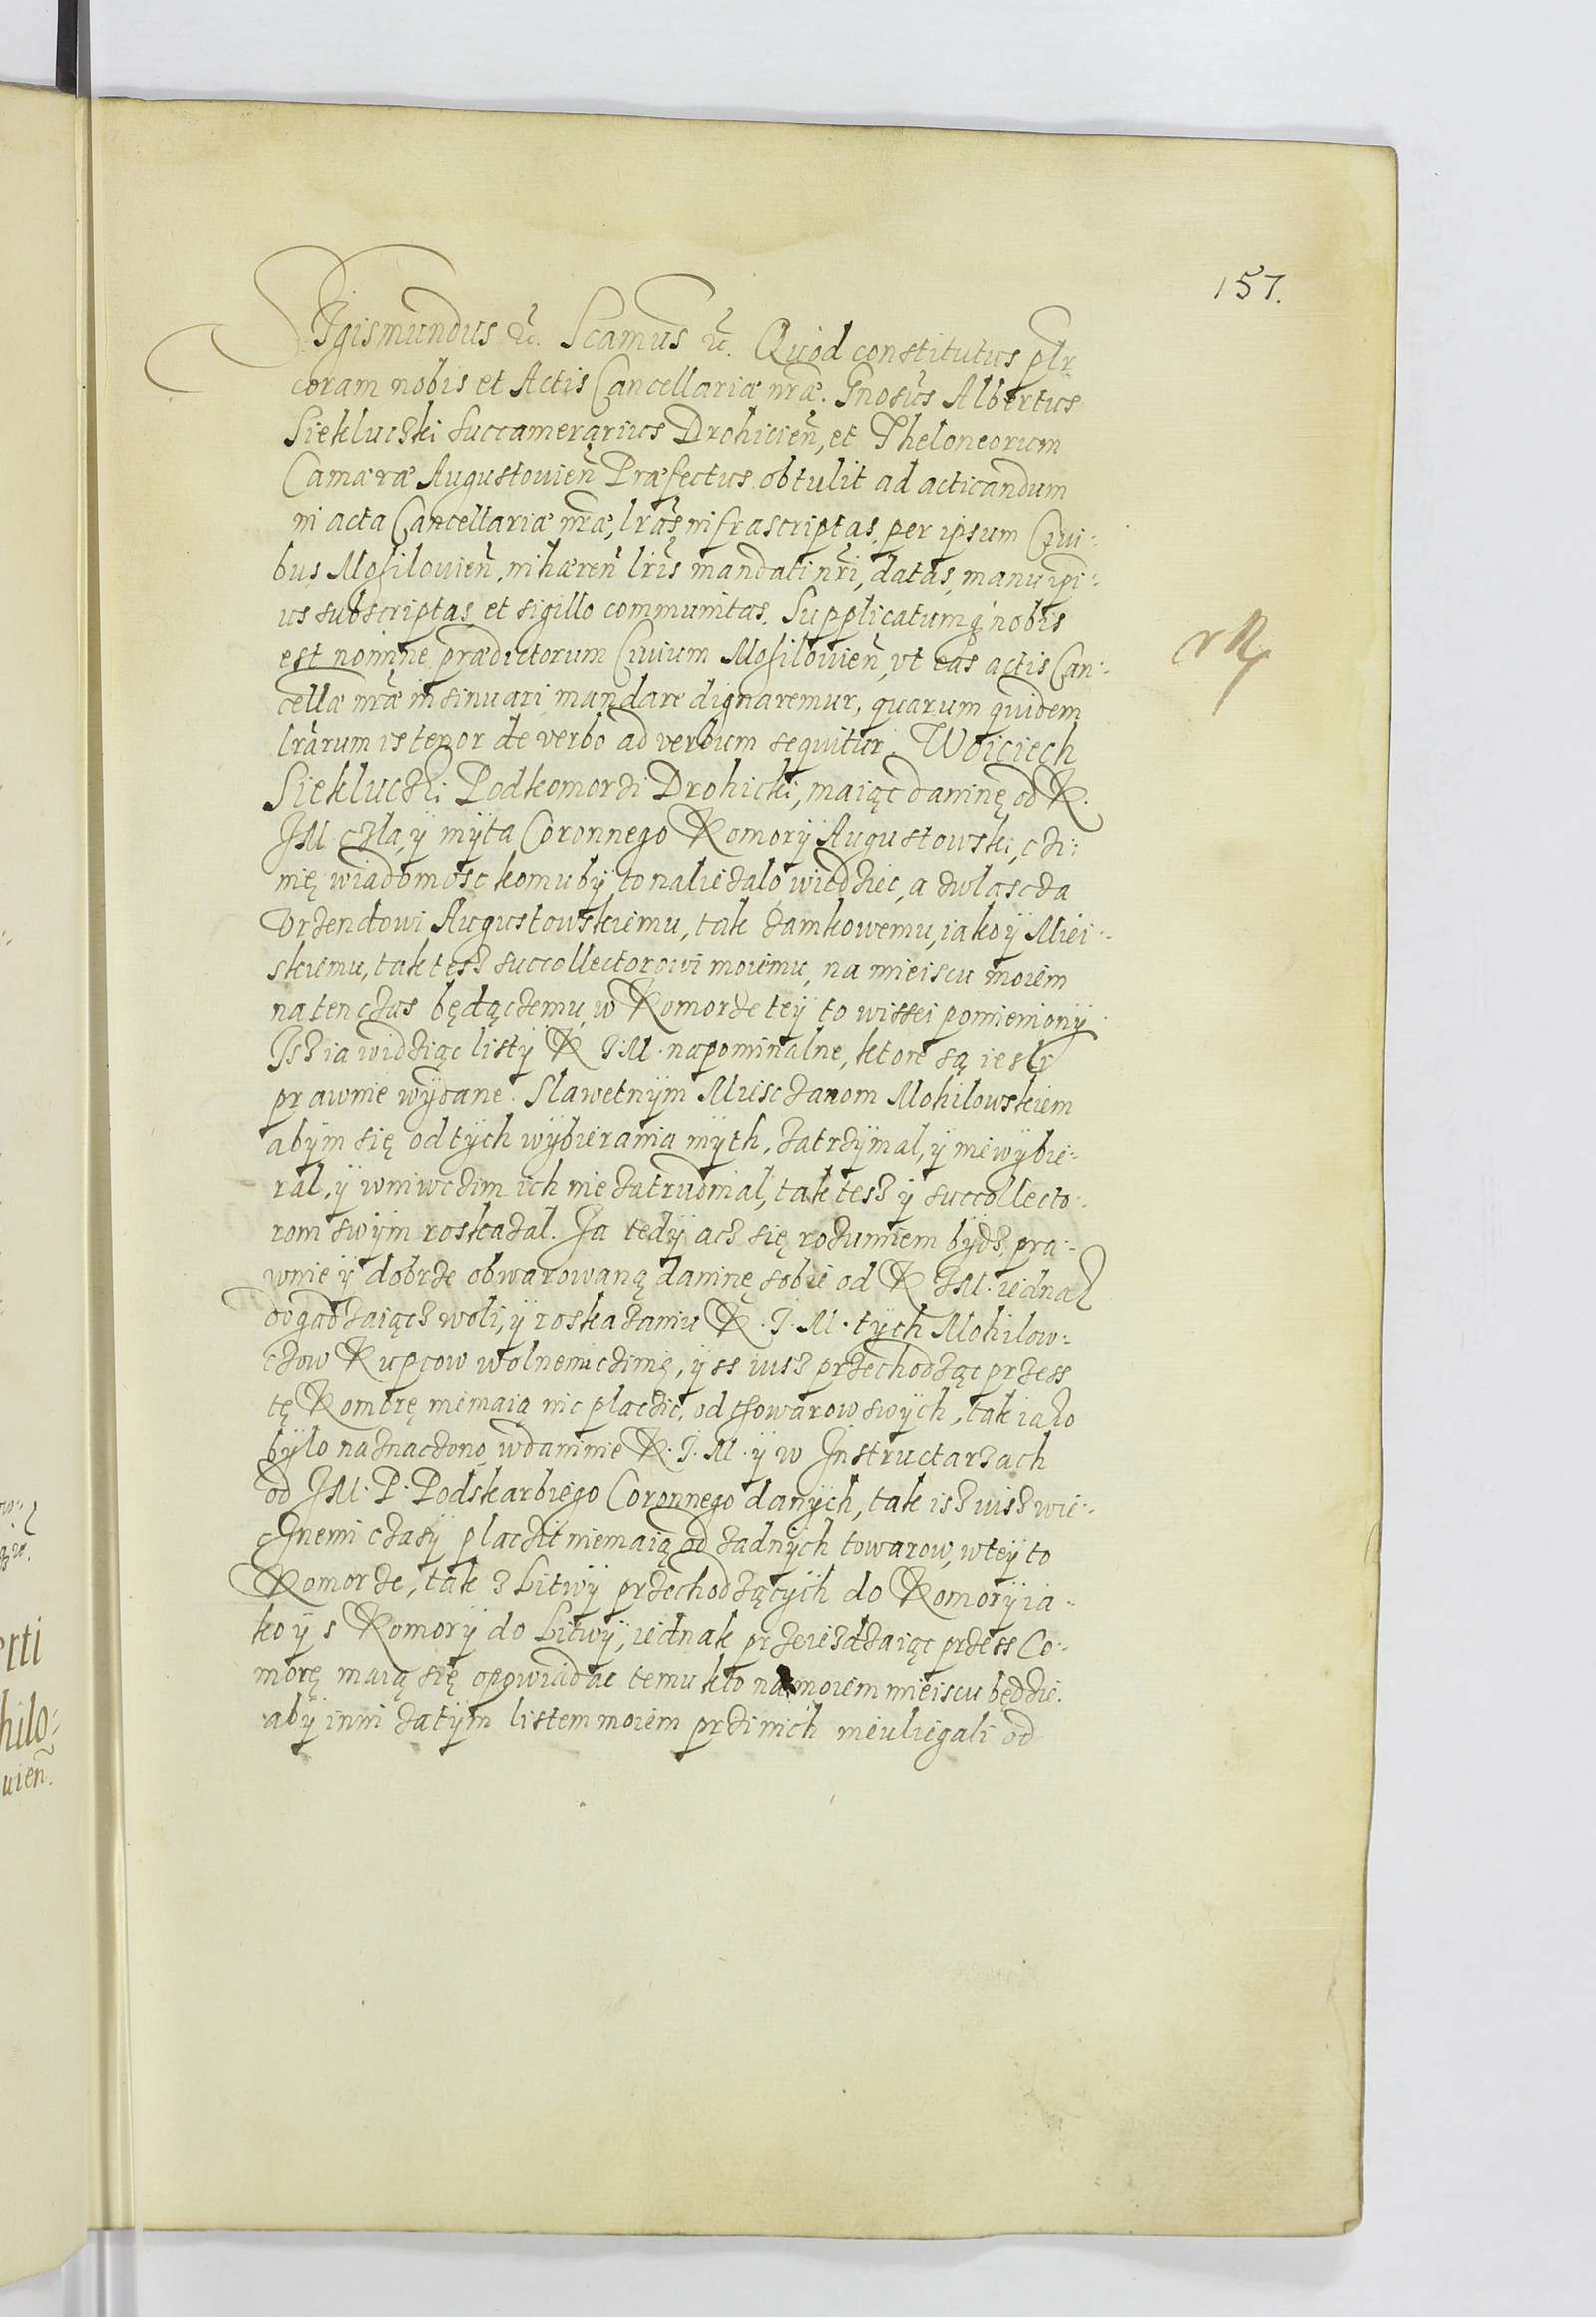 157.
Sigismundus etc. Scamus etc. Quod constitutus plr
coram nobis et Actis Cancellariæ nræ. Gnosus Albertus
Siekluczki Succamerarius Drohicien, et Theloneorum
Camæræ Augustouien Præfectus obtulit ad acticandum
in acta Cancellariæ nræ, lras infrascriptas, per ipsum Ciui-
bus Mohilouien, inhæren lris mandati nri, datas, manu ipi-
us subscriptas et sigillo communitas. Supplicatumq nobis
est nomine prædictorum Ciuium Mohilouien, vt eas actis Can-
cellæ nræ insinuari mandare dignaremur, quarum quidem
lrarum is tenor de verbo ad verbum sequitur. Woiciech
Siekluczki Podkomorzi Drohicki, maiąc daninę od K.
JM. czła, ÿ mÿta Coronnego Komorÿ Augustowski, czi-
nię wiadomosc komu bÿ to naliezało wiedziec, a zwlascza
Vrzendowi Augustowskiemu, tak zamkowemu, iako ÿ Miei-
skiemu, tak tesz succollectorowi moiemu, na mieiscu moiem
na tenczas będączemu, w Komorze teÿ to wissei pomienionÿ
Isz ia widziąc listÿ K J.M. napominalne, ktore są ieslr
prawnie wÿdane. Slawetnÿm Miesczanom Mohilowskiem
abÿm się od tÿch wÿbierania mÿth, zatrzÿmal, ÿ niewÿbie-
ral, ÿ wniwczim ich nie zatrudnial, tak tesz ÿ succollecto-
rom swÿm roskazal. Ja tedÿ acz się rozumiem bÿdz pra-
wnie ÿ dobrze obwarowaną daninę sobie od K JM. iednak
dogadzaiącz woli, ÿ roskazaniu K. J. M. tÿch Mohilow-
czow Kupcow wolnemi czinię, ÿ ss iusz przechodząc przess
tę Komorę niemaią nic placzic, od thowarow swÿch, tak iako
bÿlo naznaczono, w daninie K. J. M. ÿ w Instructarzach
od JM. P. Podskarbiego Coronnego danÿch, tak isz iusz wie-
cznemi czasÿ placzit niemaią od zadnÿch towarow, w teÿ to
Komorze, tak z Litwÿ przechodzącÿch do Komorÿ ia-
ko ÿ s Komorÿ do Litwÿ, iednak przeiezdzaiąc przess Co-
morę maią się opowiadac temu kto na moiem mieiscu będzie.
abÿ inni za tÿm listem moiem przi nich nieuliegali od